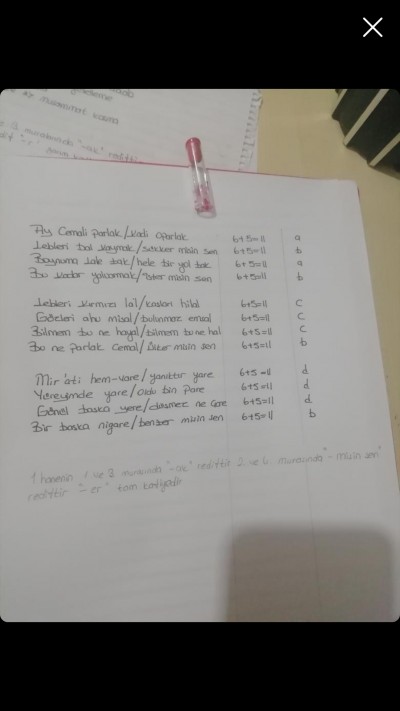 Ay Cemali parlak/kadi aparlak 6+5=11 a
Lebleri bal kaymak/sekker misin sen 6+5=11 b
Boynuma lale tak/hele bir yol bak 6+5=11 a
Bu kadar yalvarmak/ister misin sen 6+5=11 b
Lebleri kırmızı lal/kaşları hilal 6+5=11 c
Gözleri ahu misal/bulunmaz emsal 6+5=11 c
Bilmem bu ne hayal/bilmem bu ne hal 6+5=11 c
Bu ne parlak cemal/ülker misin sen 6+5=11 b
Mir'ati hem-vare/yanıttır yare 6+5=11 d
Yüreyimde yare/oldu bin pare 6+5=11 d
Gönül başka yere/düşmez ne çare 6+5=11 d
Bir başka nigare/benzer misin sen 6+5=11 b
1 hanenin 1 ve 3. mısrasında rediftir 2. ve 4. mısrasında "- misin sen"
rediftir "-er" tam kafiyedir